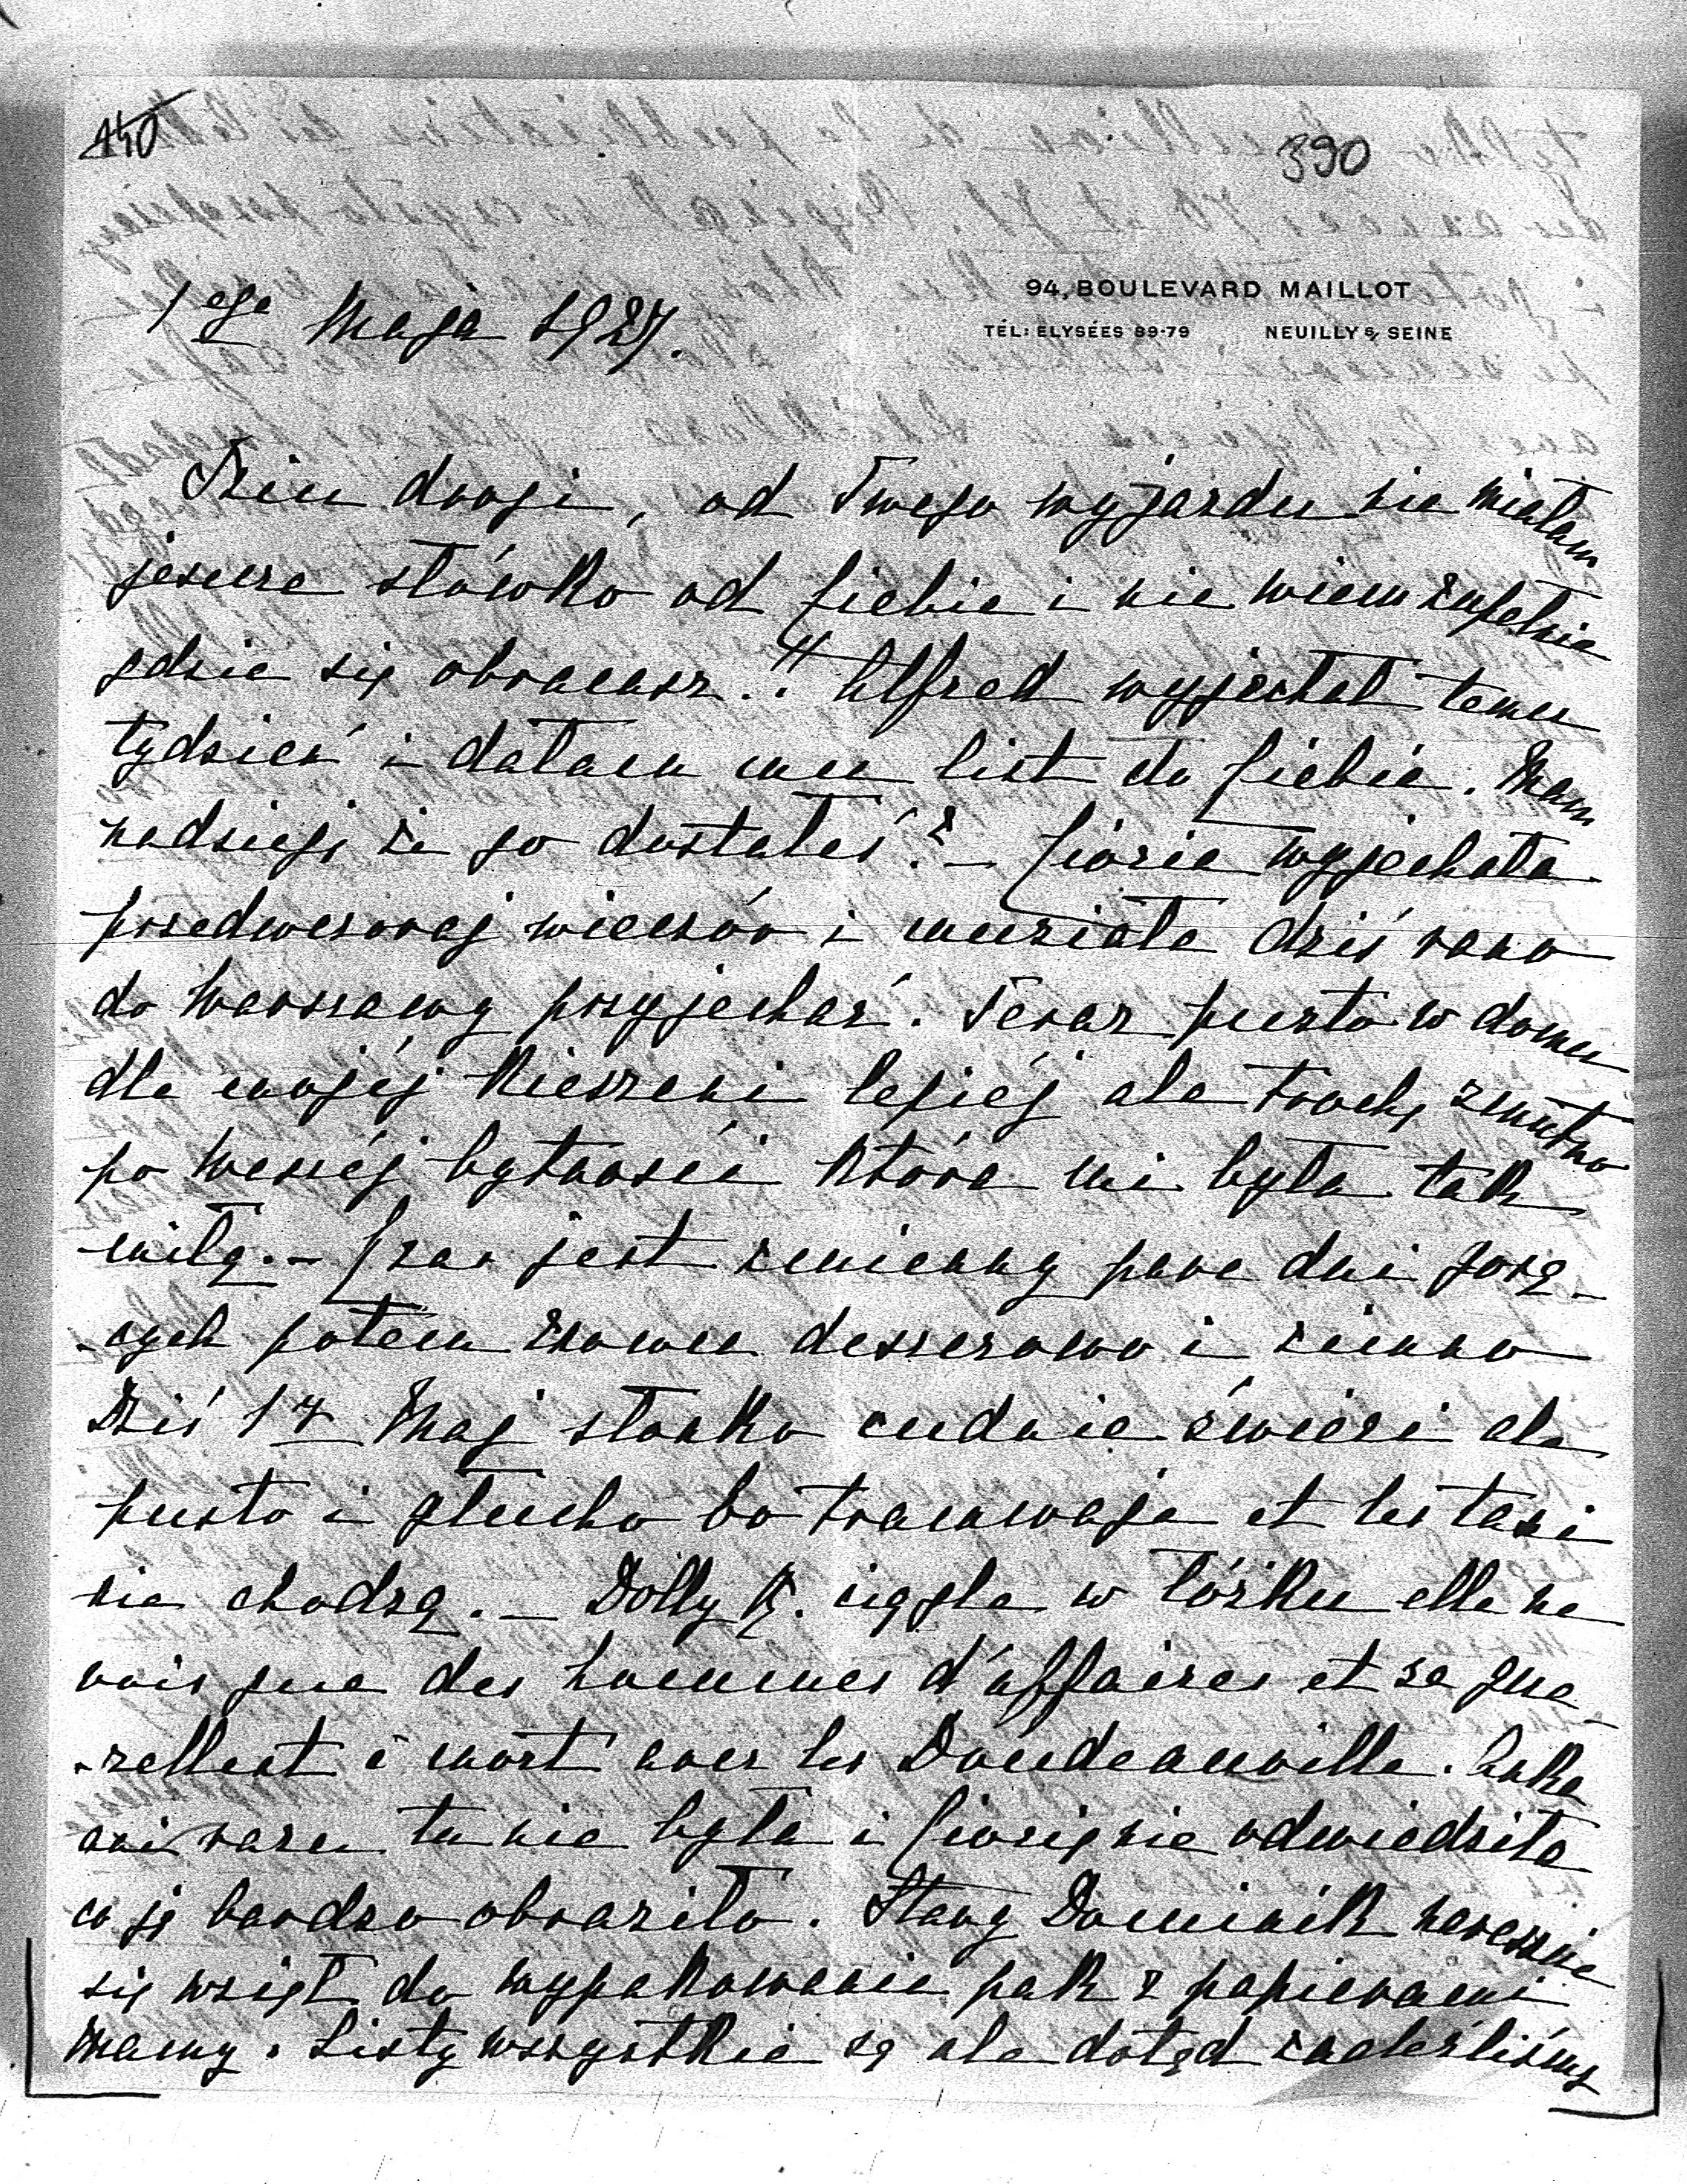 140
390
94, BOULEVARD MAILLOT
TÉL: ELYSÉES 89-79 NEUILLY s/ SEINE
1ego Maja 1927.
drogi, od Twego wyjazdu nie miałam
jeszcze słówko od Ciebie i nie wiem zupełnie
gdzie się obracasz..!! Alfred wyjechał temu
tydzień i dałam mu list do Ciebie. Mam
nadzieję że go dostałeś? – Ciozia wyjechała
przedwczoraj wieczór i musiała dziś rano
do Warszawy przyjechać. Teraz pusto w domu
dla mojéj kieszeni lepiéj ale trochę smutno
po Waszéj bytności która mi była tak
miłą. – Czas jest zmienny pare dni gorą-
-cych potem znowu deszczowo i zimno
Dziś 1r Maj słonko cudnie świeci ale
pusto i głucho bo tramwaje et les taxi
nie chodzą. – Dolly R. ciągle w łóżku elle ne
vois que des hommes d'affaires et se que-
-rellent à mort avec les Doudeauville. Anka
ani razu tu nie była i Ciozię nie odwiedziła
co ją bardzo obraziło. Stary Dominik nareszcie
się wziął do wypakowania pak z papierami
Mamy. Listy wszystkie są ale dotąd znaleźliśmy